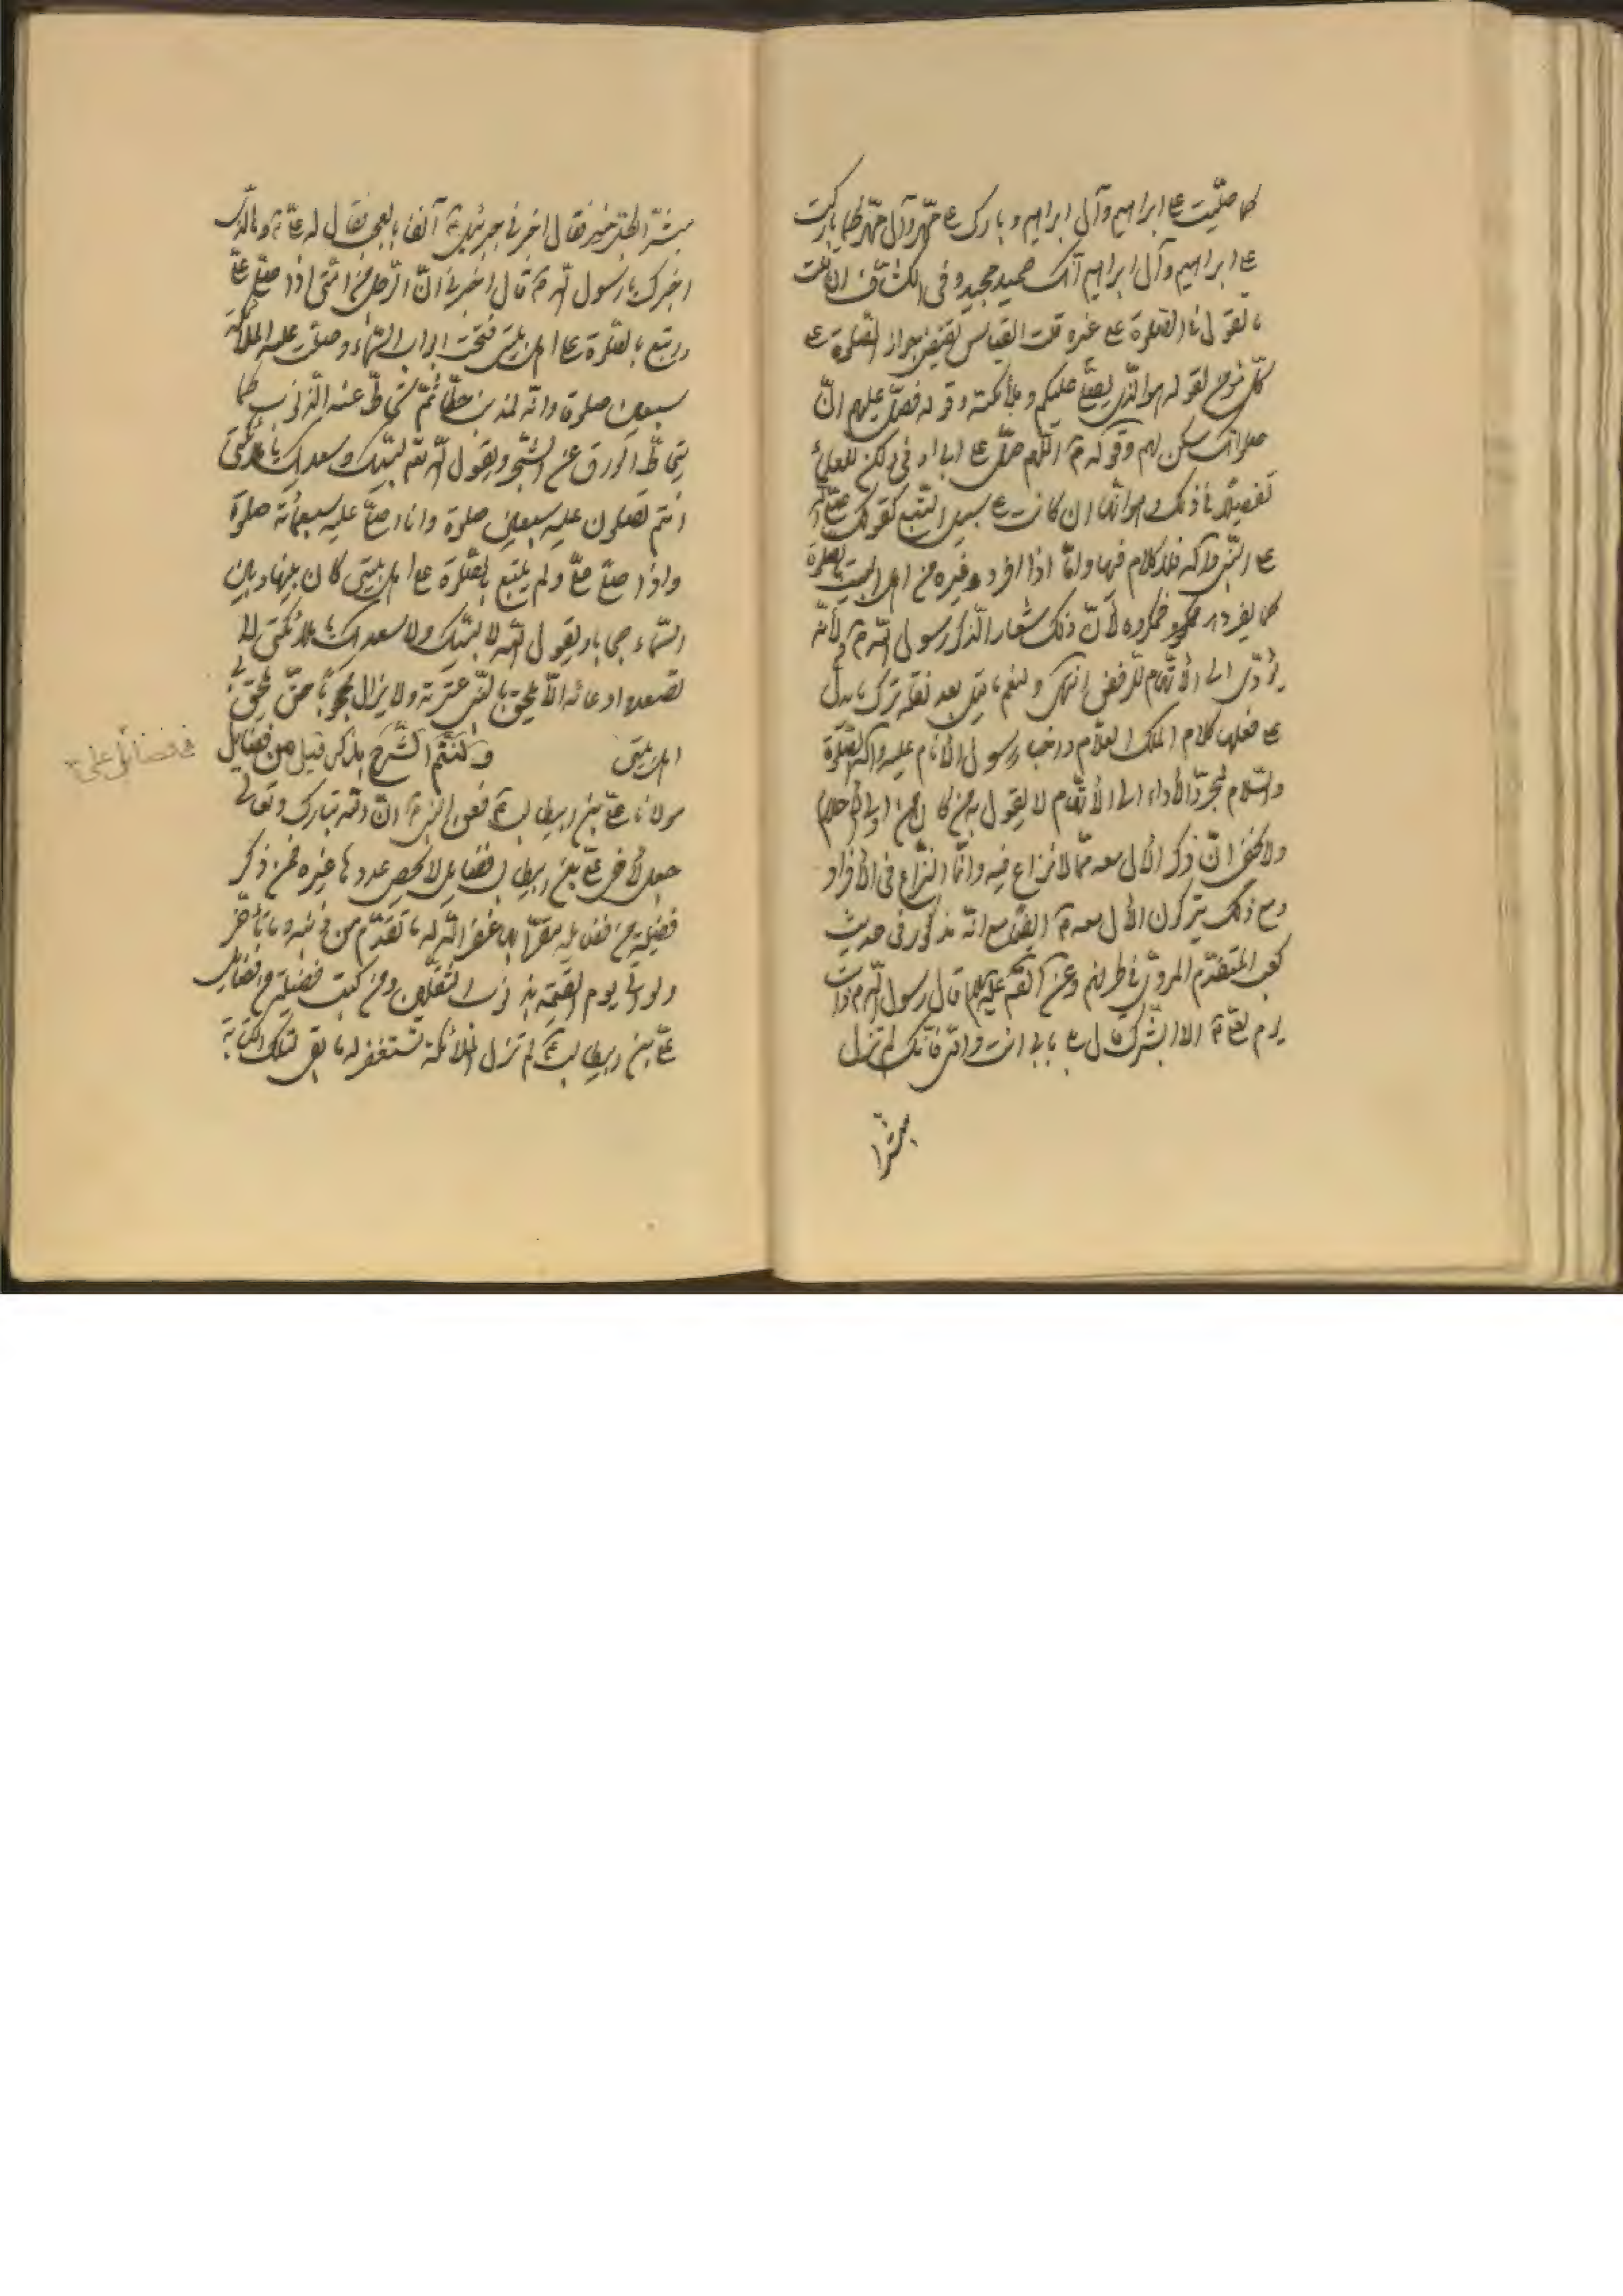 كما صليت ع ابراهيم وآل ابراهيم وبارك ع محمد وآل محمد كما باركت
ع ابراهيم وآل ابراهيم انك حميد مجيد وفى الكشاف ان قلت
ما تقول فى الصلوة ع غيره قلت القياس يقتضى جواز الصلوة ع
كل مؤمن لقوله هو الذى يصلى عليكم وملئكته وقوله فصل عليهم ان
صلوتك سكن لهم وقوله ص اللهم صل ع آل ابى اوفى ولكن للعلماء
تفصيلا فى ذلك وهو انها ان كانت ع سبيل التبع كقولك صلى الله
ع النبى وآله فلا كلام فيها واما اذا افرد غيره من اهل البيت بالصلوة
كما يفرد هو فمكروه لأن ذلك شعار الذكر رسول الله ص ولأنه
يؤدى الى الأتهام للرفض انتهى ولنعم ما قيل بعد نقله ترك ما دل
ع فعلها كلام الملك العلام ورغب رسول الأنام عليه وآله الصلوة
والسلام لمجرد الأداء الى الأتهام لا يقول به من كان من اولى الأحلام
ولا يخفى ان ذكر الآل معه مما لا نزاع فيه وانما النزاع فى الأفراد
ومع ذلك يتركون الآل معه ص ايضا مع انه مذكور فى حديث
كعب المتقدم المروى فى طرقهم وعن الصم عليه السلام قال رسول الله ص ذات
يوم لعلى ع الا ابشرك قال بلى بابى انت وامى فانك لم تزل
مبشرا
مبشرا لكل خير فقال اخبرنى جبرئيل ع آنفا بالعجب فقال له على ع وما الذى
اخبرك يا رسول الله ص قال اخبرنى ان الرجل من امتى اذا صلى على
واتبع بالصلوة ع اهل بيتى فتحت ابواب السماء وصلت عليه الملائكة
سبعين صلوة وانه لمذنب خطاء ثم تحاط عنه الذنوب كما
يتحاط الورق عن الشجر ويقول الله تعم لبيك وسعديك يا ملائكتى
انتم تصلون عليه سبعين صلوة وانا اصلى عليه سبعمائة صلوة
واذا صلى على ولم يتبع بالصلوة ع اهل بيتى كان بينها وبين
السماء حجابا ويقول الله لا لبيك ولا سعديك يا ملائكتى لا
تصعدوا دعائه الا ان يلحق بالنبى عترته ولا يزال محجوبا حتى يلحق بى
اهل بيتى ولنتم الشرح بذكر قليل من فضايل
فضائل على ع
مولانا على بن ابيطالب ع فعن النبى ص ان الله تبارك وتعالى
جعل لأخى على بن ابيطالب فضايل لا يحصى عددها غيره فمن ذكر
فضيلة من فضايله مقرا بها غفر الله له ما تقدم من ذنبه وما تأخر
ولو اتى يوم القيمة بذنوب الثقلين ومن كتب فضيلة من فضايل
على بن ابيطالب ع لم تزل الملائكة تستغفر له ما بقى لتلك الكتابة